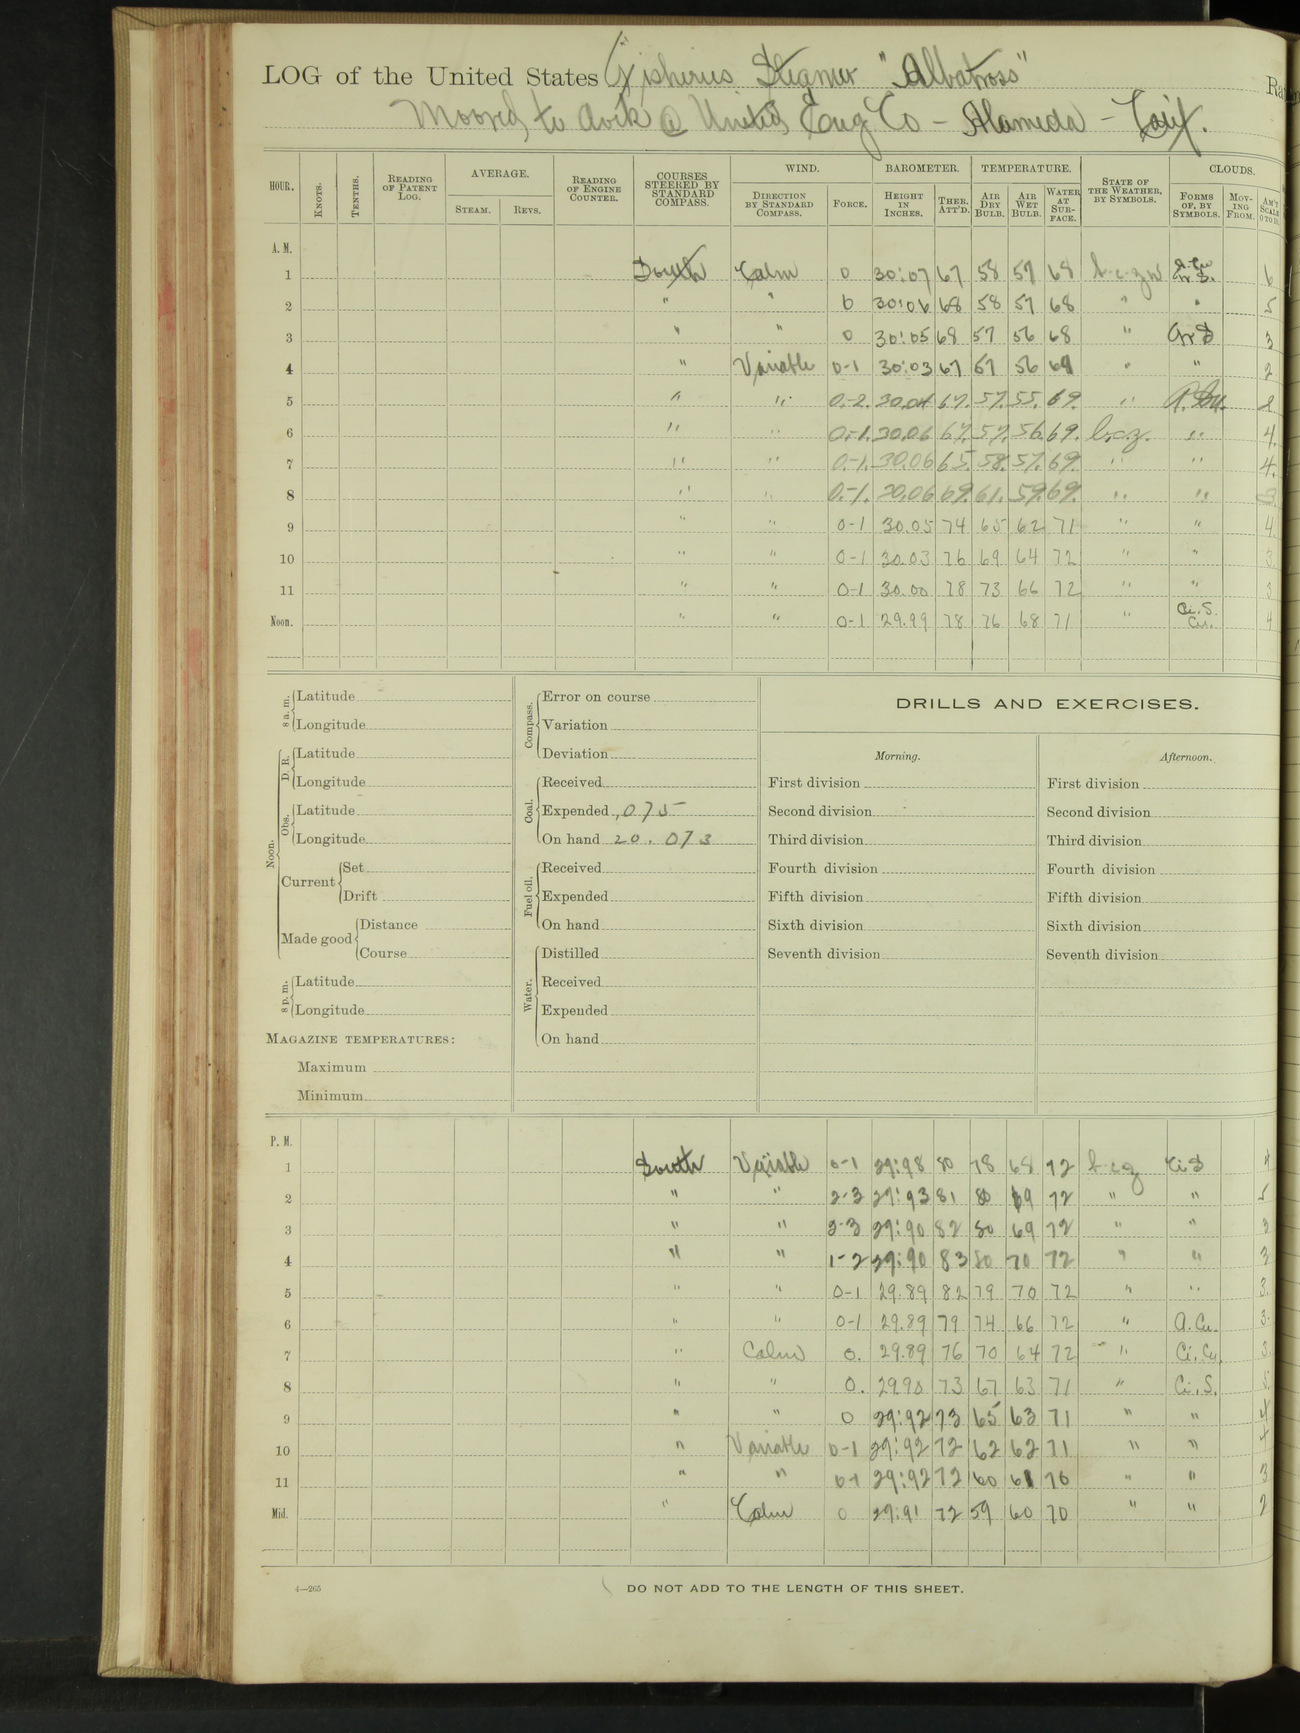 LOG of the United States Fisheries Steamer "Albatross"
Moored to dock @ United Eng Co - Alameda - Calif.
HOUR. KNOTS. TENTHS. READING OF PATENT LOG. AVERAGE. STEAM. REVS. READING OF ENGINE COUNTER. COURSES STEERED BY STANDARD COMPASS. WIND. DIRECTION BY STANDARD COMPASS. FORCE. BAROMETER. HEIGHT IN INCHES. THER. ATT'D. TEMPERATURE. AIR DRY BULB. AIR WET BULB. WATER AT SURFACE. STATE OF THE WEATHER, BY SYMBOLS. CLOUDS. FORMS OF, BY SYMBOLS. MOVING FROM. AM'T SCALE 0 TO 10.
A. M.
1 South Calm 0 30:07 67 58 57 68 6
2 " " 0 30:06 68 58 57 68 " " 5
3 " " 0 30:05 68 57 56 68 " 3
4 " Variable 0-1 30:03 67 57 56 69 " " 2
5 " " 0.-2. 30.04 67. 57. 55. 69. " 2
6 " " 0.-1. 30.06 67. 57. 56. 69. b.c.z. " 4.
7 " " 0.-1. 30.06 65. 58. 57. 69. " " 4.
8 " " 0.-1. 30.06 69. 61. 59. 69. " " 3.
9 " " 0-1 30.05 74 65 62 71 " " 4.
10 " " 0-1 30.03 76 69 64 72 " " 3.
11 " " 0-1 30.00 78 73 66 72 " " 3
Noon. " " 0-1 29.99 78 76 68 71 " Ci.S. Cu. 4
8 a.m. Latitude
Longitude
Noon. D. R. Latitude
Longitude
Obs. Latitude
Longitude
Current Set
Drift
Made good Distance
Course
8 p.m. Latitude
Longitude
MAGAZINE TEMPERATURES:
Maximum
Minimum
Compass. Error on course
Variation
Deviation
Coal. Received
Expended .075
On hand 20.073
Fuel oil. Received
Expended
On hand
Water. Distilled
Received
Expended
On hand
DRILLS AND EXERCISES.
Morning. Afternoon.
First division First division
Second division Second division
Third division Third division
Fourth division Fourth division
Fifth division Fifth division
Sixth division Sixth division
Seventh division Seventh division
P. M.
1 South Variable 0-1 29:98 80 78 68 72 b.c.z Ci S 4
2 " " 2-3 29:93 81 80 69 72 " " 5
3 " " 2-3 29:90 82 80 69 72 " " 3
4 " " 1-2 29:90 83 80 70 72 " " 3
5 " " 0-1 29.89 82 79 70 72 " " 3.
6 " " 0-1 29.89 79 74 66 72 " A.Cu. 3.
7 " Calm 0. 29.89 76 70 64 72 " Ci.Cu. 3.
8 " " 0. 29.90 73 67 63 71 " Ci.S.
9 " " 0 29:92 73 65 63 71 " " 4
10 " Variable 0-1 29:92 72 62 62 71 " "
11 " " 0-1 29:92 72 60 61 70 " " 3
Mid. " Calm 0 29:91 72 59 60 70 " " 2
4—265
DO NOT ADD TO THE LENGTH OF THIS SHEET.